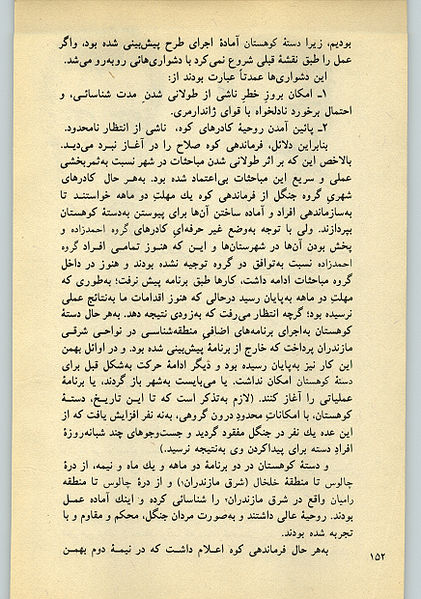 بودیم، زیرا دستهٔ کوهستان آمادهٔ اجرای طرح پیش‌بینی شده بود، واگر
عمل را طبق نقشهٔ قبلی شروع نمی‌کرد با دشواری‌هائی روبه‌رو می‌شد.
این دشواری‌ها عمدتاً عبارت بودند از:
۱ـ امکان بروز خطرِ ناشی از طولانی شدن مدت شناسائی، و
احتمال برخورد نادلخواه با قوای ژاندارمری.
۲ـ پائین آمدن روحیهٔ کادرهای کوه، ناشی از انتظار نامحدود.
بنابراین دلائل، فرماندهی کوه صلاح را در آغاز نبرد می‌دیـد.
بالاخص این که بر اثر طولانی شدن مباحثات در شهر نسبت به‌ثمربخشی
عملی و سریع این مباحثات بی‌اعتماد شده بود. به‌هر حال کادرهای
شهریِ گروه جنگل از فرماندهی کوه یک مهلتِ دو ماهه خواستنـد تا
به‌سازماندهی افراد و آماده ساختن آن‌ها برای پیوستن به‌دستهٔ کوهستان
بپردازند. ولی با توجه به‌وضع غیر حرفه‌ایِ کادرهای گروه احمدزاده و
پخش بودن آن‌ها در شهرستان‌ها و ایـن که هنـوز تمامـی افـراد گروه
احمدزاده نسبت به‌توافق دو گروه توجیه نشده بودند و هنوز در داخل
گروه مباحثات ادامه داشت، کارها طبق برنامه پیش نرفت؛ به‌طوری که
مهلتِ دو ماهه به‌پایان رسید درحالی که هنوز اقدامات ما به‌نتایج عملی
نرسیده بود؛ گرچه انتظار می‌رفت که به‌زودی نتیجه دهد. به‌هر حال دستهٔ
کوهستان به‌اجرای برنامه‌های اضافیِ منطقه‌شناسی در نواحی شرقـی
مازندران پرداخت که خارج از برنامهٔ پیش‌بینی شده بود. و در اوائل بهمن
این کار نیز به‌پایان رسیده بود و دیگر ادامهٔ حرکت به‌شکل قبل برای
دستهٔ کوهستان امکان نداشت. یا می‌بایست به‌شهر باز گردند، یا برنامهٔ
عملیاتی را آغاز کنند. (لازم به‌تذکر است که تا این تاریـخ، دستـهٔ
کوهستان، با امکاناتِ محدودِ درون گروهی، به‌نه نفر افزایش یافت که از
این عده یک نفر در جنگل مفقود گردید و جست‌وجوهای چند شبانه‌روزهٔ
افرادِ دسته برای پیداکردن وی به‌نتیجه نرسید.)
و دستهٔ کوهستان در دو برنامهٔ دو ماهه و یك ماه و نیمه، از درهٔ
چالوس تا منطقهٔ خلخال (شرق مازندران۱) و از درهٔ چالوس تا منطقه
رامیان واقع در شرق مازندران۲ را شناسائی کرده و اینك آماده عمـل
بودند. روحیهٔ عالی داشتند و به‌صورت مردان جنگل، محکم و مقاوم و با
تجربه شده بودند.
به‌هر حال فرماندهی کوه اعـلام داشـت که در نیمـهٔ دوم بهمـن
۱۵۲